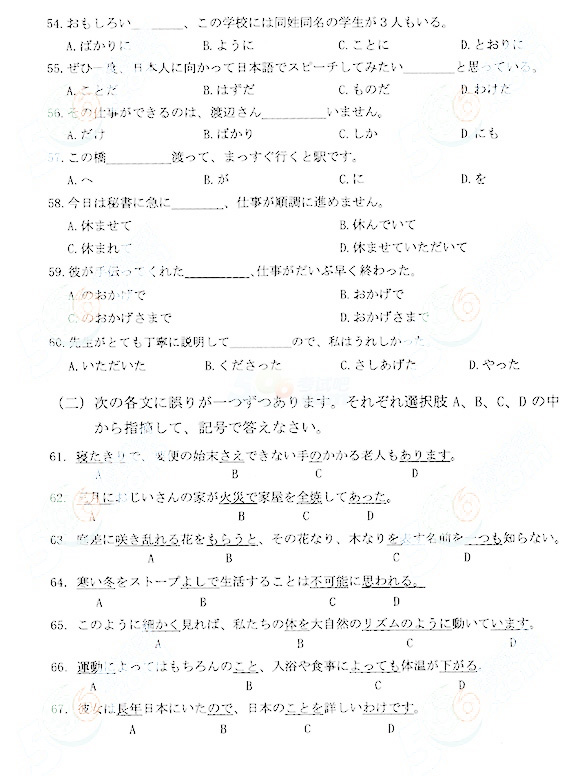 54.おもしろい________、この学校には同姓同名の学生が3人もいる。
A.ばかりに B.ように C.ことに D.とおりに
55.ぜひ一度、日本人に向かって日本語でスピーチしてみたい________と思っている。
A.ことだ B.はずだ C.ものだ D.わけた
56.その仕事ができるのは、渡辺さん__________いません。
A.だけ B.ばかり C.しか D.にも
57.この橋__________渡って、まっすぐ行くと駅です。
A.へ B.が C.に D.を
58.今日は秘書に急に________、仕事が順調に進めません。
A.休ませて B.休んでいて
C.休まれて D.休ませていただいて
59.彼が手伝ってくれた__________、仕事がだいぶ早く終わった。
A.のおかげで B.おかげで
C.のおかげさまで D.おかげさまで
60.先生がとても丁寧に説明して__________ので、私はうれしかった
A.いただいた B.くださった C.さしあげた D.やった
(二)次の各文に誤りが一つずつあります。それぞれ選択肢 A、B、C、D の中
から指摘して、記号で答えなさい。
61. 寝たきりで、便の始末さえできない手のかかる老人もあります。
A B C D
62. 三月におじいさんの家が火災で家屋を全焼してあった。
A B C D
63. に咲き乱れる花をもらうと、その花なり、木なりを表す名前を一つも知らない。
A B C D
64. 寒い冬をストーブよしで生活することは不可能に思われる。
A B C D
65. このように細かく見れば、私たちの体を大自然のリズムのように動いています。
A B C D
66. 運動によってはもちろんのこと、入浴や食事によっても体温が下がる.
A B C D
67. 彼女は長年日本にいたので、日本のことを詳しいわけです。
A B C D